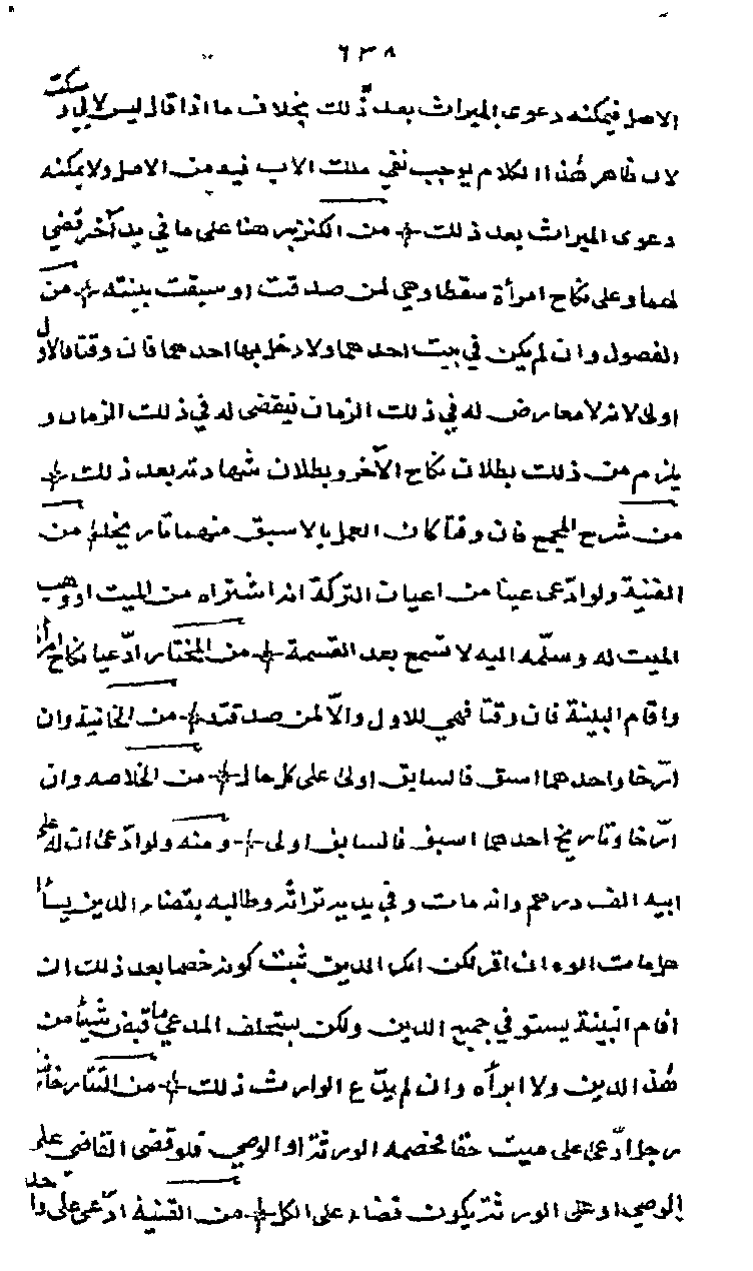 ٦٣٨
الاصل فيمكنه دعوى الميراث بعد ذلك بخلاف ما اذا قال ليس لابي و سكت
لان ظاهر هذا الكلام يوجب نفي ملك الاب فيه من الاصل ولا يمكنه
دعوى الميراث بعد ذلك من الكنز برهنا على ما في يد آخر قضي
لهما وعلى نكاح امرأة سقطا وهي لمن صدقت او سبقت بينته من
الفصول وان لم يكن في بيت احدهما ولا دخل بها احدهما فان وقتا فالاول
اولى لانه لا معارض له في ذلك الزمان فيقضى له في ذلك الزمان و
يلزم من ذلك بطلان نكاح الآخر وبطلان شهادته بعد ذلك
من شرح المجمع فان وقتا كان العمل بالاسبق منهما تاريخا من
القنية ولو ادّعى عينا من اعيان التركة انه اشتراه من الميت او وهب
الميت له وسلّمه اليه لا تسمع بعد القسمة من المختار ادّعيا نكاح امرأة
واقام البينة فان وقتا فهي للاول والّا لمن صدقته من الخانية وان
ارّخا واحدهما اسبق فالسابق اولى على كل حال من الخلاصه وان
ارّخا وتاريخ احدهما اسبق فالسابق اولى ومنه ولو ادّعى ان له على
ابيه الف درهم وانه مات وفي يديه تراثه وطالبه بقضاء الدين يسأل
هل مات ابوه ان اقر لكن انكر الدين ثبت كونه خصما بعد ذلك ان
اقام البينة يستوفي جميع الدين ولكن يستحلف المدعي ما قبض شيئا من
هذا الدين ولا ابرأه وان لم يدّع الوارث ذلك من التتارخانية
رجل ادّعى على ميت حقا فخصمه الورثة او الوصي فلو قضى القاضي على
الوصي او على الورثة يكون قضاء على الكل من القنية ادّعى على واحد